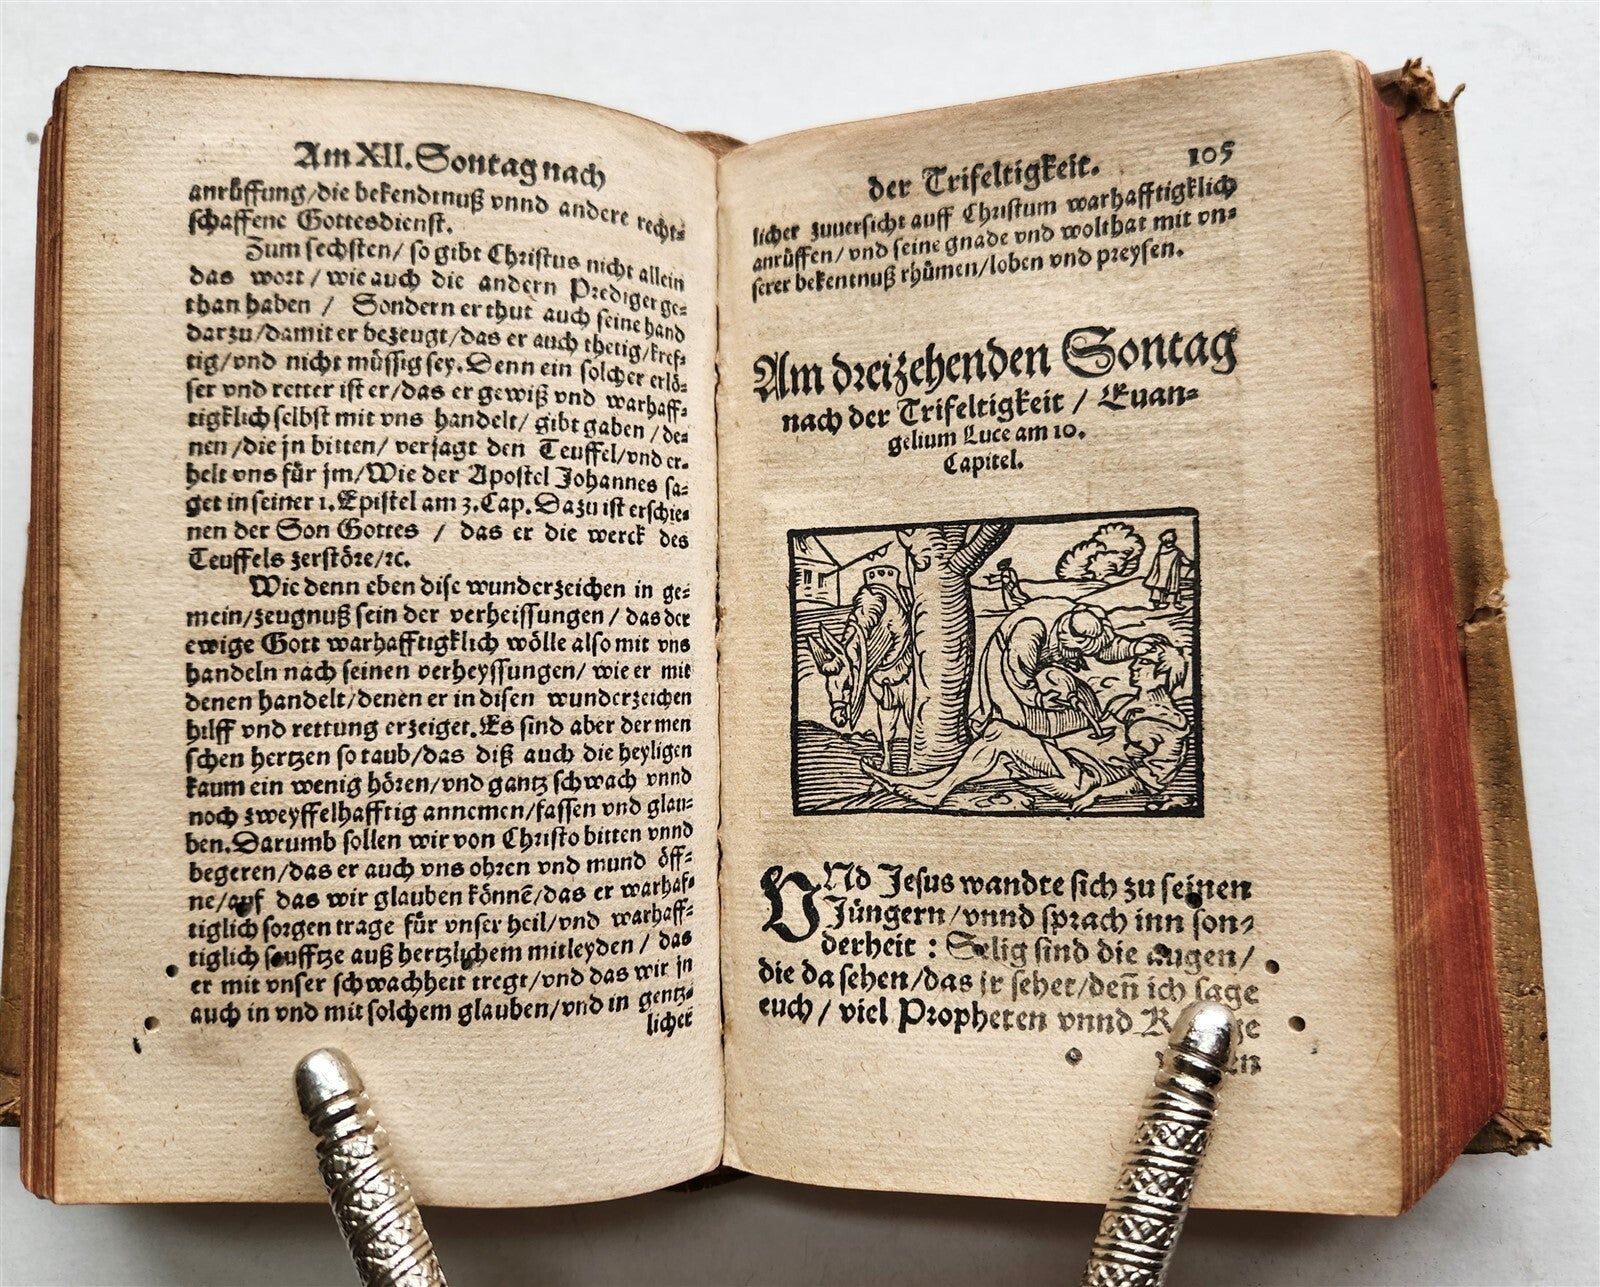 Am XII. Sontag nach
anrüffung/die bekendtnuß vnnd andere recht-
schaffene Gottesdienst.
Zum sechsten/ so gibt Christus nicht allein
das wort/ wie auch die andern Prediger ge-
than haben / Sondern er thut auch seine hand
darzu/damit er bezeugt/das er auch thetig/kref-
tig/vnd nicht müssig sey. Denn ein solcher erlö-
ser vnd retter ist er/das er gewiß vnd warhaff-
tigklich selbst mit vns handelt/ gibt gaben /de-
nen /die jn bitten/ verjagt den Teuffel/vnd er-
helt vns für jm/Wie der Apostel Johannes sa-
get in seiner 1. Epistel am 3. Cap. Dazu ist erschie-
nen der Son Gottes / das er die werck des
Teuffels zerstöre/ꝛc.
Wie denn eben dise wunderzeichen in ge-
mein/zeugnuß sein der verheissungen / das der
ewige Gott warhafftigklich wölle also mit vns
handeln nach seinen verheyssungen/ wie er mit
denen handelt/denen er in disen wunderzeichen
hilff vnd rettung erzeiget. Es sind aber der men
schen hertzen so taub/das diß auch die heyligen
kaum ein wenig hören/vnd gantz schwach vnnd
noch zweyffelhafftig annemen/fassen vnd glau-
ben. Darumb sollen wir von Christo bitten vnnd
begeren/das er auch vns ohren vnd mund öff-
ne/auf das wir glauben könnē/das er warhaf-
tiglich sorgen trage für vnser heil/vnd warhaff-
tiglich seufftze auß hertzlichem mitleyden / das
er mit vnser schwachheit tregt/vnd das wir jn
auch in vnd mit solchem glauben/vnd in gentz-
licher
der Trifeltigkeit. 105
licher zuuersicht auff Christum warhafftigklich
anrüffen/ vnd seine gnade vnd wolthat mit vn-
serer bekentnuß rhümen/loben vnd preysen.
Am dreizehenden Sontag
nach der Trifeltigkeit / Euan-
gelium Luce am 10.
Capitel.
VNd Jesus wandte sich zu seinen
Jüngern/vnnd sprach inn son-
derheit : Selig sind die augen/
die da sehen/das jr sehet/deñ ich sage
euch / viel Propheten vnnd